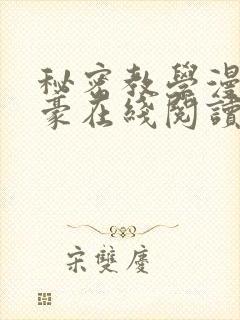 秘密教學漫
豪在綫閱讀
宋雙慶